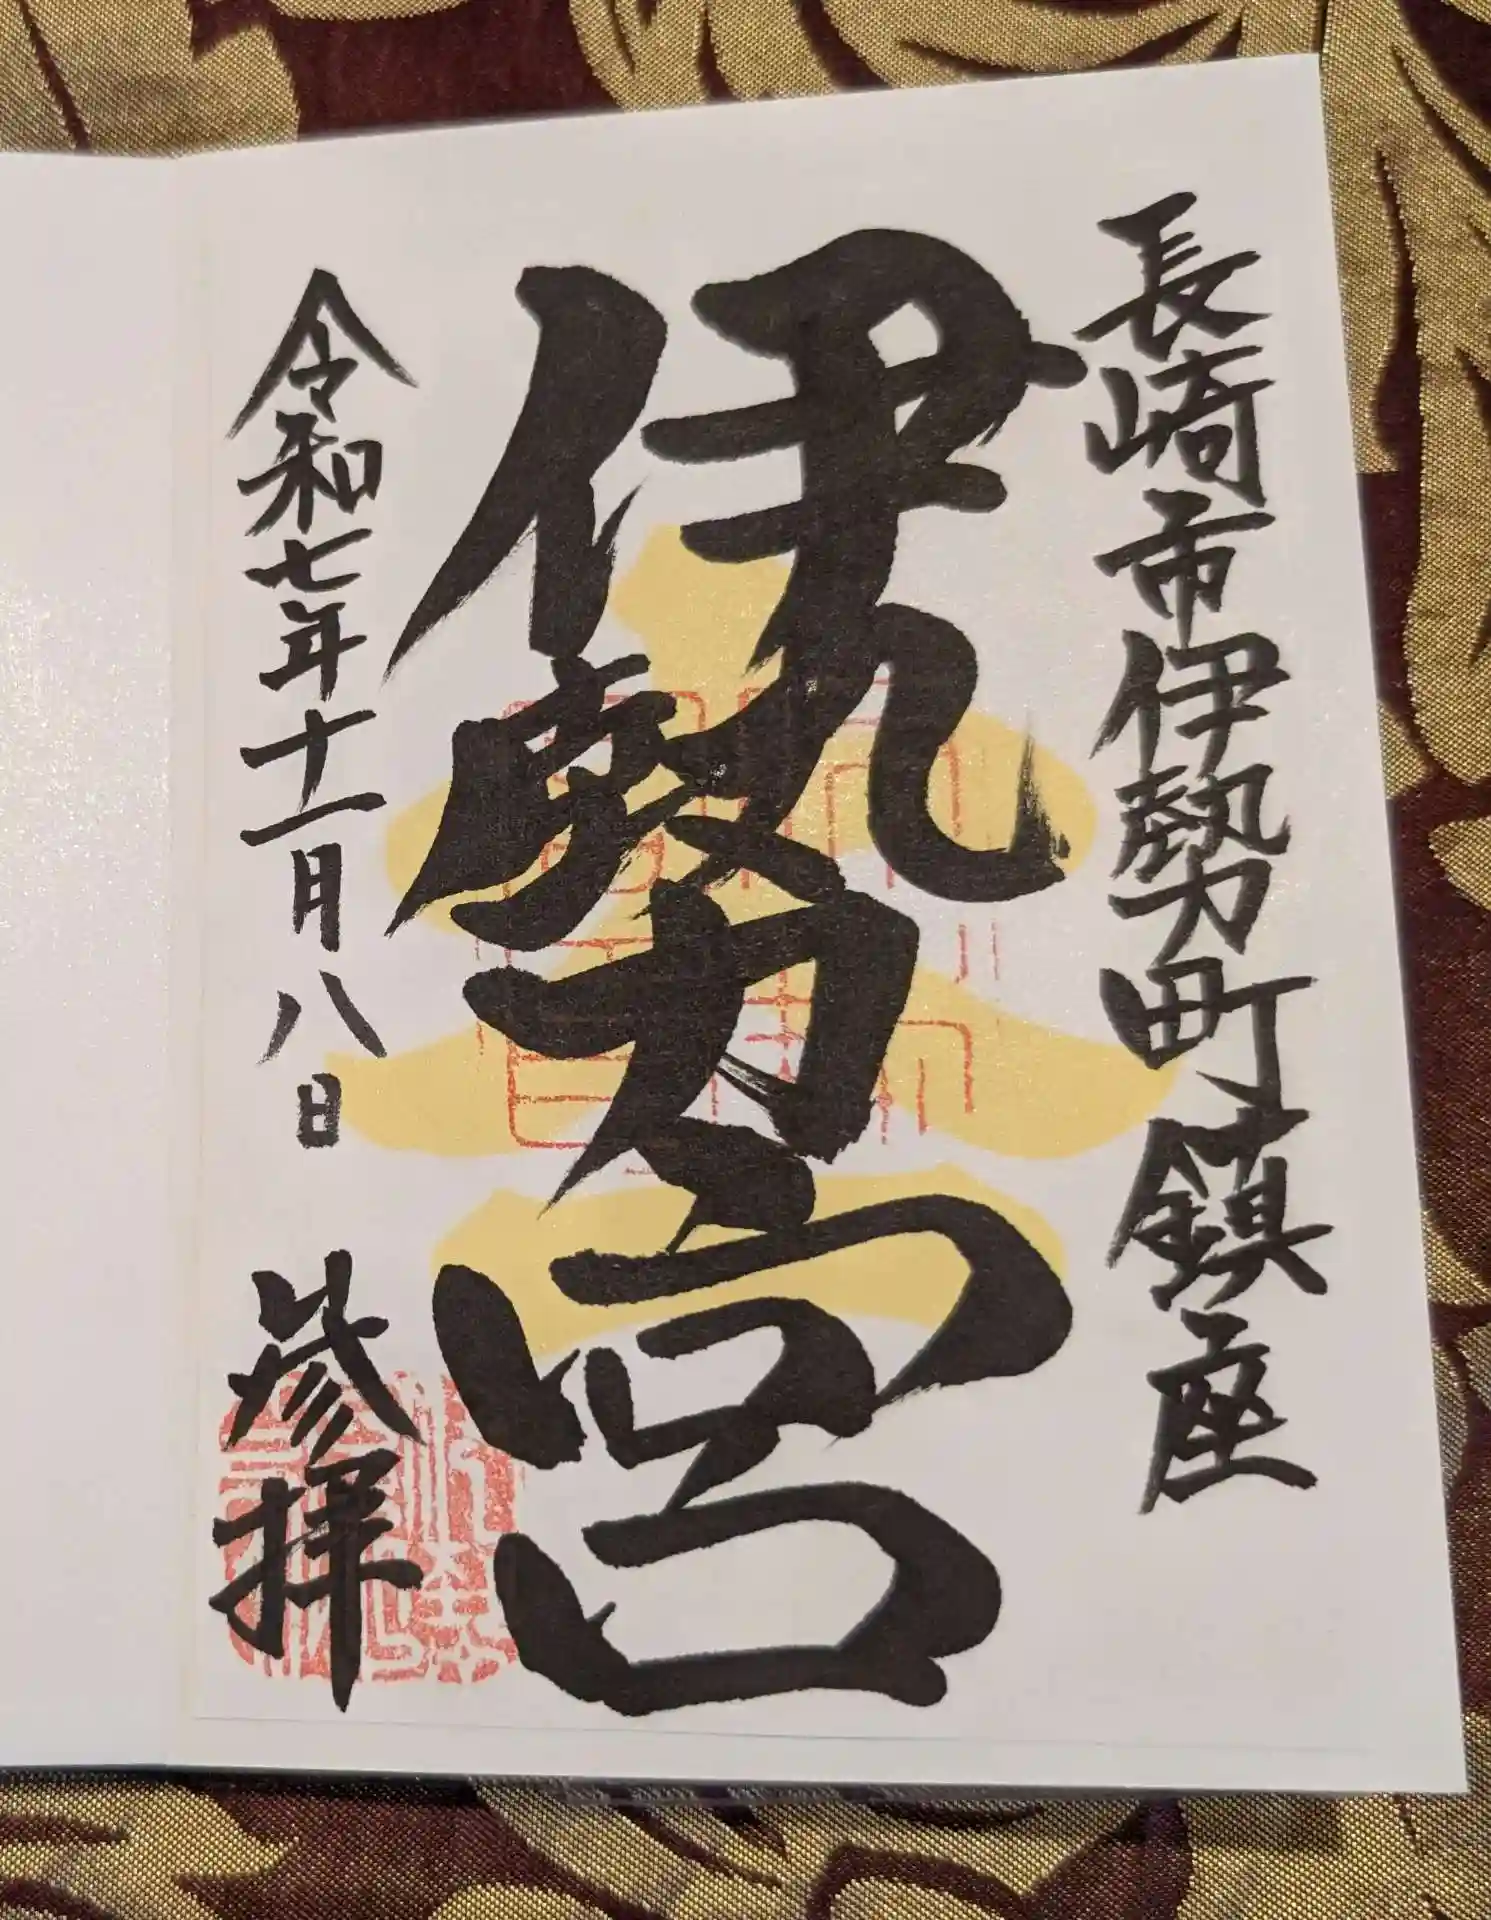 長崎市伊勢町鎮座
伊勢宮
令和七年十一月八日 参拝